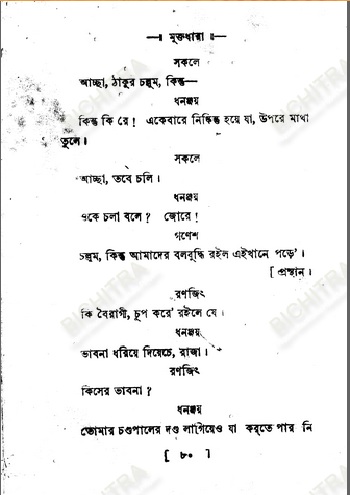 —॥ মুক্তধারা ॥—
সকলে
আচ্ছা, ঠাকুর চল্লুম, কিন্তু—
ধনঞ্জয়
কিন্তু কি রে! একেবারে নিষ্কিন্তু হয়ে যা, উপরে মাথা
তুলে।
সকলে
আচ্ছা, তবে চলি।
ধনঞ্জয়
একে চলা বলে? জোরে!
গণেশ
চল্লুম, কিন্তু আমাদের বলবুদ্ধি রইল এইখানে পড়ে'।
[ প্রস্থান।
রণজিৎ
কি বৈরাগী, চুপ করে' রইলে যে।
ধনঞ্জয়
ভাবনা ধরিয়ে দিয়েচে, রাজা।
রণজিৎ
কিসের ভাবনা?
ধনঞ্জয়
তোমার চণ্ডপালের দণ্ড লাগিয়েও যা করতে পার নি
[ ৮০ ]
BICHITRA
BICHITRA
BICHITRA
BICHITRA
BICHITRA
BICHITRA